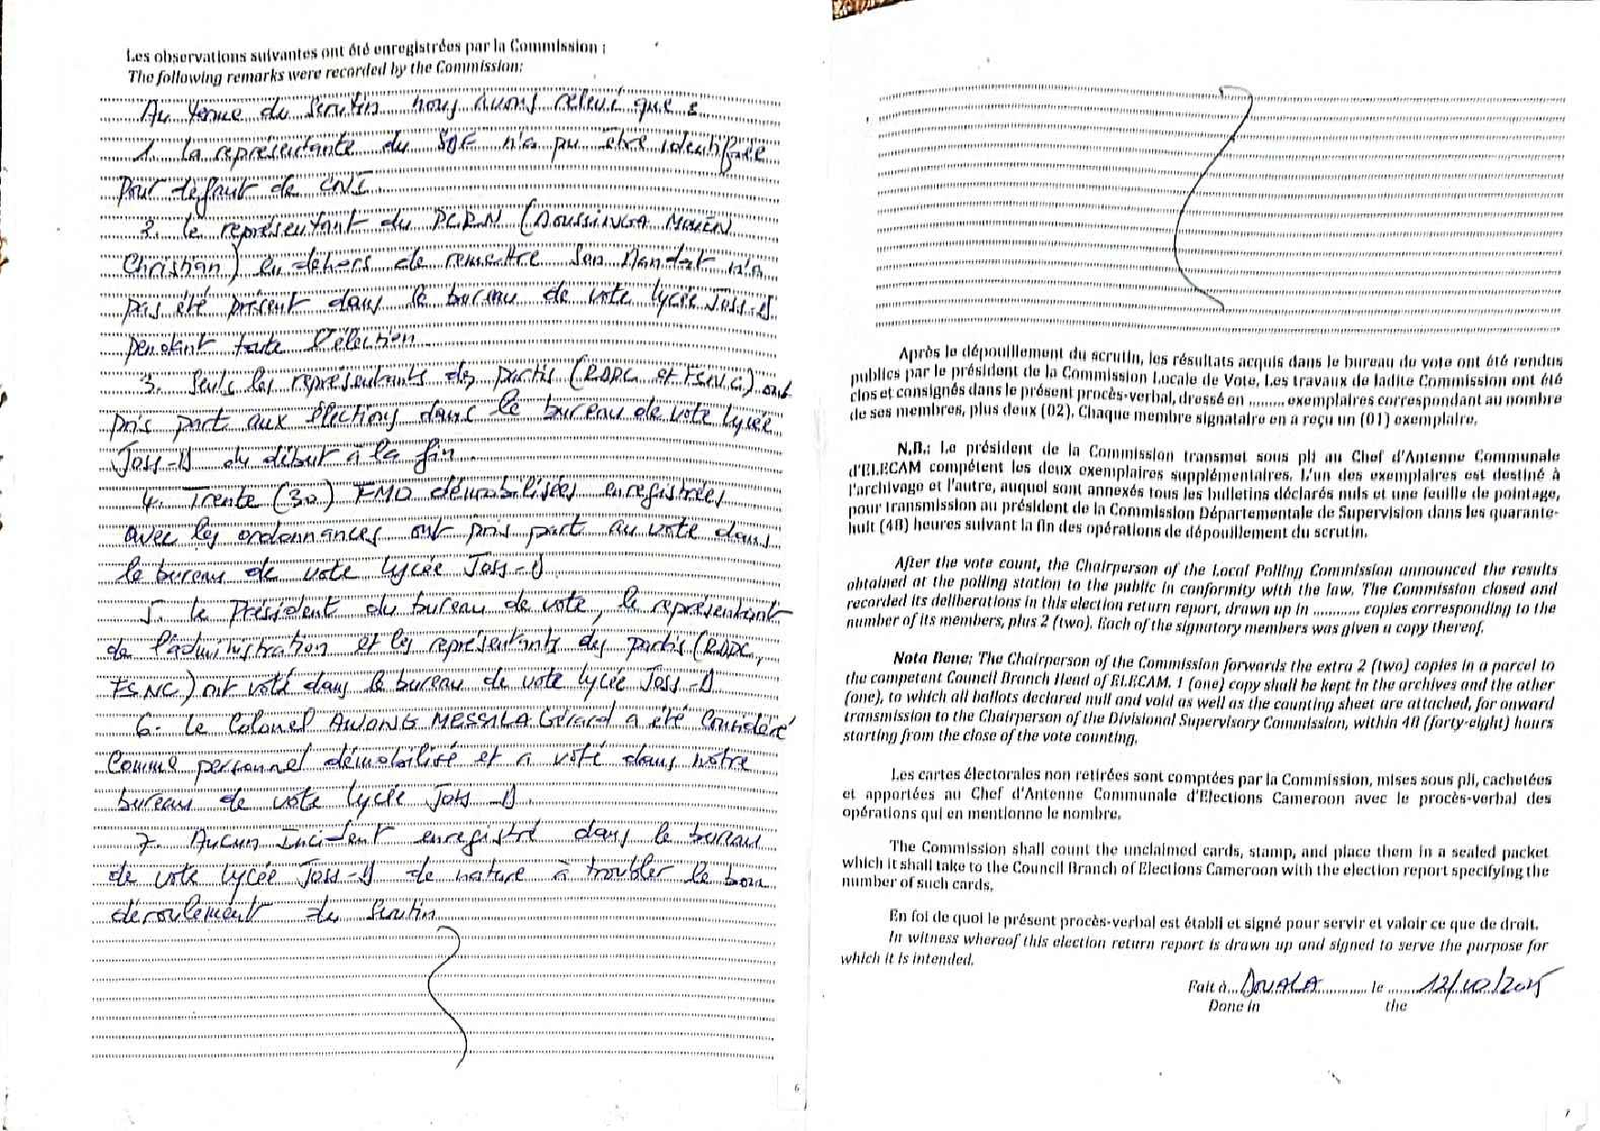 Les observations suivantes ont été enregistrées par la Commission :
The following remarks were recorded by the Commission:
Au terme du Scrutin nous avons relevé que :
1. la représentante du SDF n'a pu être identifiée
pour défaut de CNI.
2. le représentant du PCRN (
Christian) en dehors de remettre son Mandat n'a
pas été présent dans le bureau de vote lycée Joss-D
pendant toute l'élection.
3. Seuls les représentants des partis (RDPC et FSNC) ont
pris part aux élections dans le bureau de vote lycée
Joss-D du début à la fin.
4. Trente (30) FMO démobilisées enregistrées
avec les ordonnances ont pris part au vote dans
le bureau de vote lycée Joss-D.
5. le Président du bureau de vote, le représentant
de l'administration et les représentants des partis (RDPC,
FSNC) ont voté dans le bureau de vote lycée Joss-D
6. Le Colonel AWONG MESSILA Gérard a été Considéré
Comme personnel démobilisé et a voté dans notre
bureau de vote lycée Joss-D.
7. Aucun Incident enregistré dans le bureau
de vote lycée Joss-D de nature à troubler le bon
déroulement du Scrutin
6
Après le dépouillement du scrutin, les résultats acquis dans le bureau du vote ont été rendus
publics par le président de la Commission Locale de Vote. Les travaux de ladite Commission ont été
clos et consignés dans le présent procès-verbal, dressé en ......... exemplaires correspondant au nombre
de ses membres, plus deux (02). Chaque membre signataire en a reçu un (01) exemplaire.
N.B.: Le président de la Commission transmet sous pli au Chef d'Antenne Communale
d'ELECAM compétent les deux exemplaires supplémentaires. L'un des exemplaires est destiné à
l'archivage et l'autre, auquel sont annexés tous les bulletins déclarés nuls et une feuille de pointage,
pour transmission au président de la Commission Départementale de Supervision dans les quarante-
huit (48) heures suivant la fin des opérations de dépouillement du scrutin.
After the vote count, the Chairperson of the Local Polling Commission announced the results
obtained at the polling station to the public in conformity with the law. The Commission closed and
recorded its deliberations in this election return report, drawn up in ........... copies corresponding to the
number of its members, plus 2 (two). Each of the signatory members was given a copy thereof.
Nota Bene: The Chairperson of the Commission forwards the extra 2 (two) copies in a parcel to
the competent Council Branch Head of ELECAM. 1 (one) copy shall be kept in the archives and the other
(one), to which all ballots declared null and void as well as the counting sheet are attached, for onward
transmission to the Chairperson of the Divisional Supervisory Commission, within 48 (forty-eight) hours
starting from the close of the vote counting.
Les cartes électorales non retirées sont comptées par la Commission, mises sous pli, cachetées
et apportées au Chef d'Antenne Communale d'Elections Cameroon avec le procès-verbal des
opérations qui en mentionne le nombre.
The Commission shall count the unclaimed cards, stamp, and place them in a sealed packet
which it shall take to the Council Branch of Elections Cameroon with the election report specifying the
number of such cards.
En foi de quoi le présent procès-verbal est établi et signé pour servir et valoir ce que de droit.
In witness whereof this election return report is drawn up and signed to serve the purpose for
which it is intended.
Fait à DOUALA le 12/10/2025
Done in the